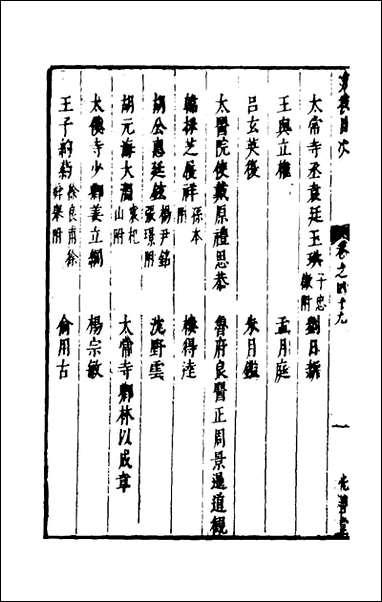 分省目次 卷之四十九 一
太常寺丞袁廷玉珙 子忠徹附 劉日新
王與立權 孟月庭
呂玄英復 朱月鑑
太醫院使戴原禮思恭 魯府良醫正周景暹道觀
韓採芝履祥 孫本附 樓得達
胡公惠廷鉉 楊尹銘 張璟附 沈野雲
胡元海大淵 袁杞山附 太常寺卿林以成章
太僕寺少卿姜立綱 楊宗敏
王子約 徐良甫 徐祥舉附 俞用古